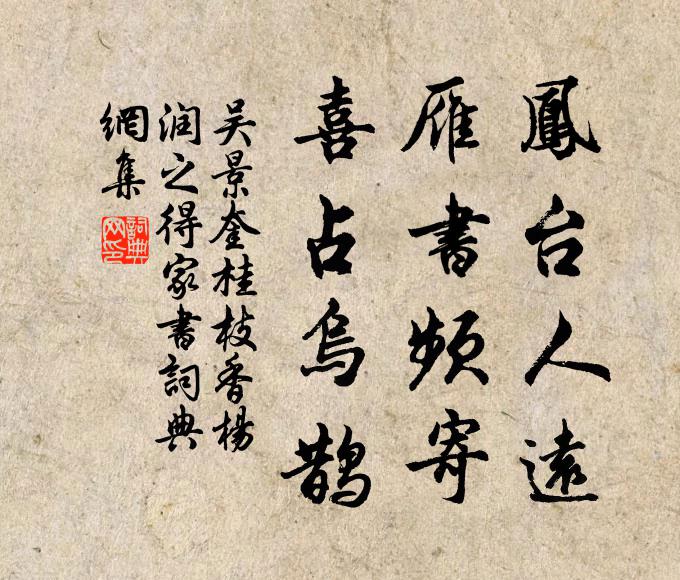 鳳台人遠
雁書頻寄
喜占烏鵲
吴景奎桂枝香楊
润之得家書詞典
網集
詞典
网印